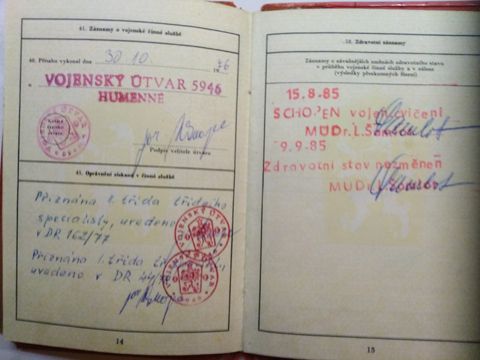 41. Záznamy o vojenské činné službě
40. Přísahu vykonal dne 30 10 1976
VOJENSKÝ ÚTVAR 5946
HUMENNÉ
Podpis velitele útvaru
45. Oprávnění získaná v činné službě
Přiznána 2. třída třídního
specialisty, uvedeno
v DR 162/77
Přiznána 1. třída
uvedeno v DR
VOJENSKÝ ÚTVAR
14
50. Zdravotní záznamy
Záznamy o závažnějších změnách zdravotního stavu
v průběhu vojenské činné služby a v záloze
(výsledky přezkumných řízení)
15.8.85
SCHOPEN vojen.cvičení
MUDr.L.
9.9.85
Zdravotní stav nezměněn
MUDr.
15